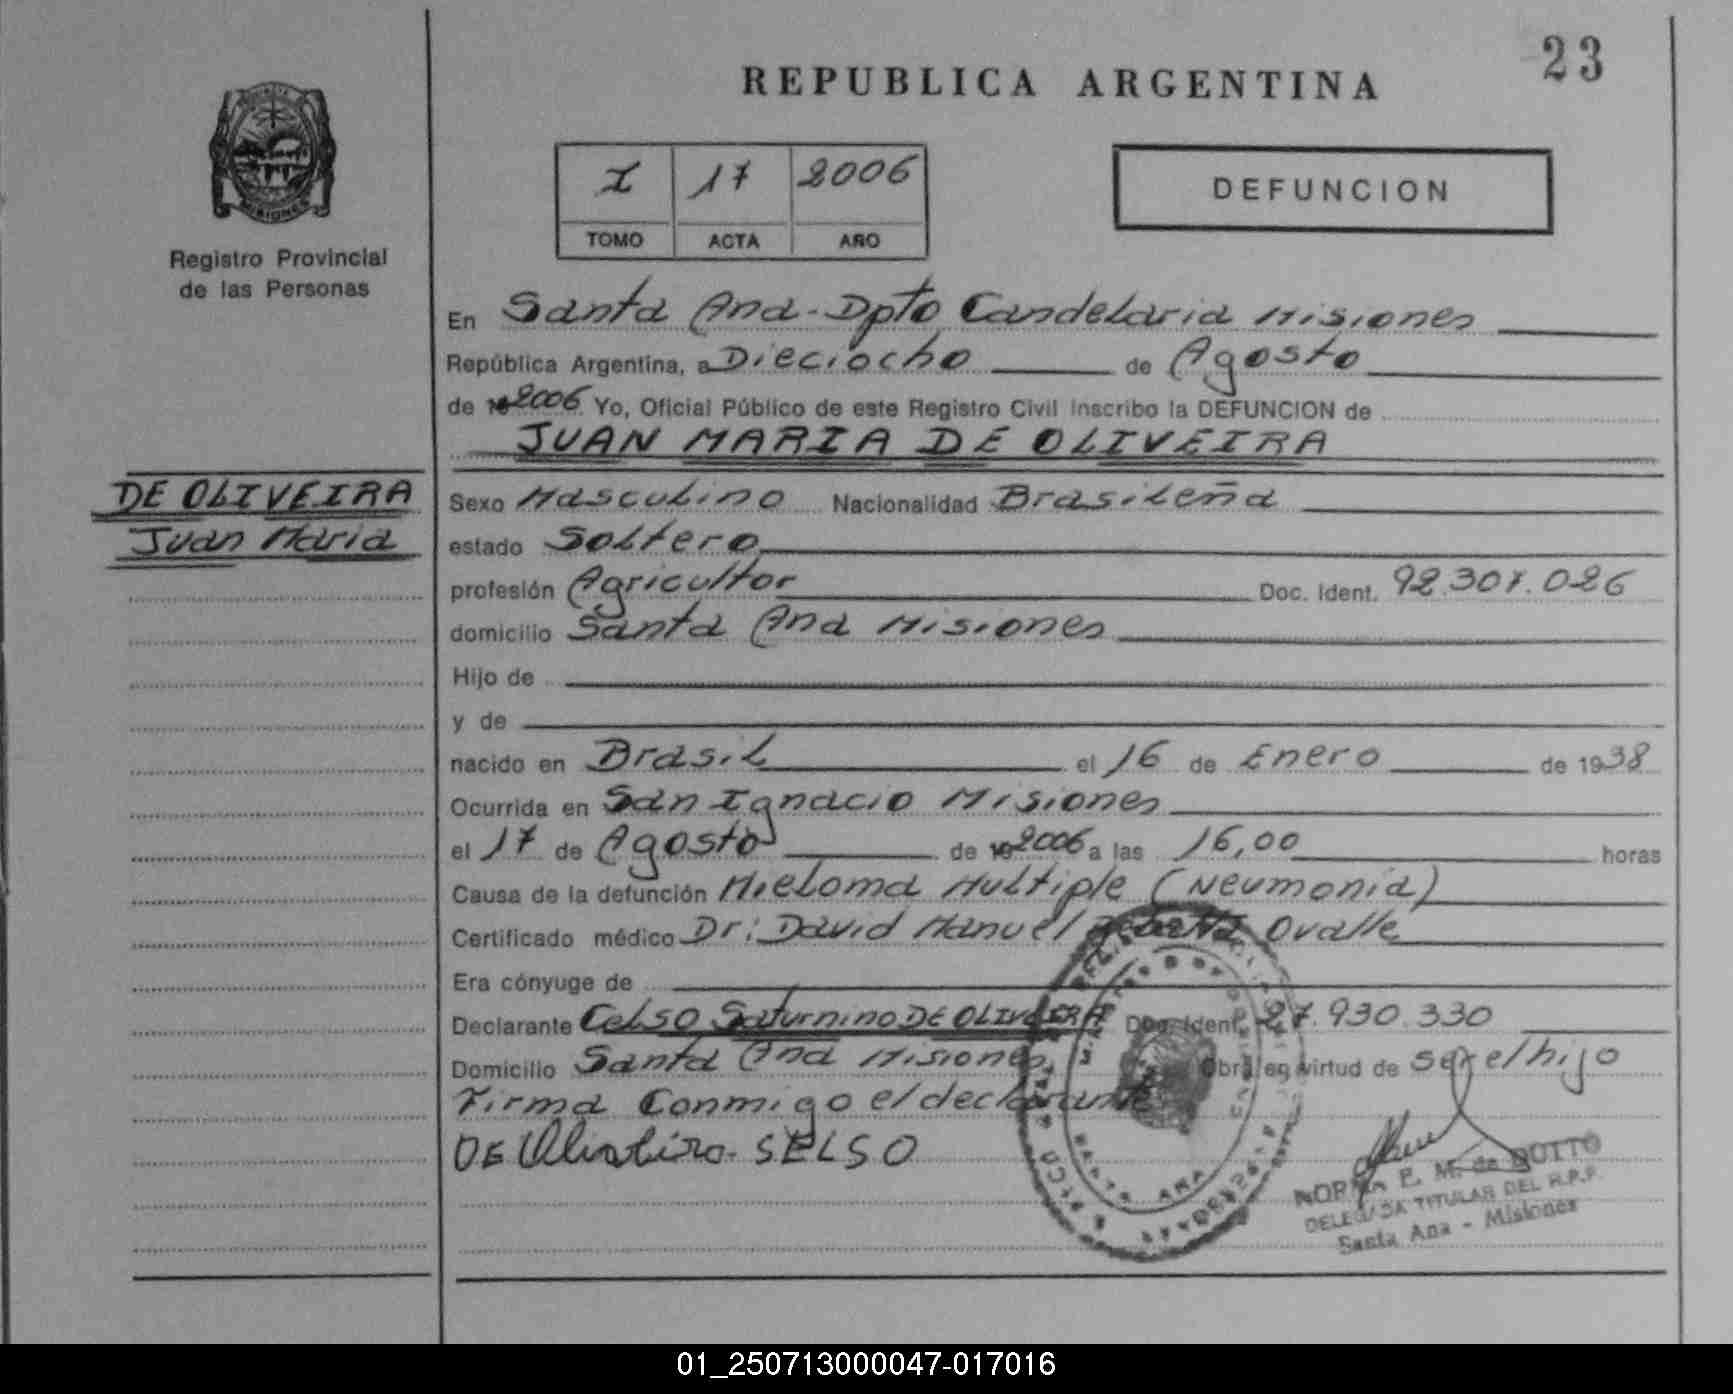 23
REPUBLICA ARGENTINA
I 17 2006
TOMO ACTA AÑO
DEFUNCION
MISIONES
Registro Provincial
de las Personas
En Santa Ana-Dpto Candelaria Misiones
República Argentina, a Dieciocho de Agosto
de 19 2006 Yo, Oficial Público de este Registro Civil inscribo la DEFUNCION de
JUAN MARIA DE OLIVEIRA
DE OLIVEIRA
Juan Maria
Sexo Masculino Nacionalidad Brasileña
estado Soltero
profesión Agricultor Doc. Ident. 92.307.026
domicilio Santa Ana Misiones
Hijo de
y de
nacido en Brasil el 16 de Enero de 1938
Ocurrida en San Ignacio Misiones
el 17 de Agosto de 19 2006 a las 16,00 horas
Causa de la defunción Mieloma Multiple (Neumonia)
Certificado médico Dr: David Manuel Ovalle
Era cónyuge de
Declarante Celso Saturnino DE OLIVEIRA Doc. Ident. 27.930.330
Domicilio Santa Ana Misiones Obra en virtud de ser el hijo
Firma Conmigo el declarante
DE Oliveira SELSO
SANTA ANA
NORMA E. M. de DOTTO
DELEGADA TITULAR DEL R.P.P.
Santa Ana - Misiones
01_250713000047-017016